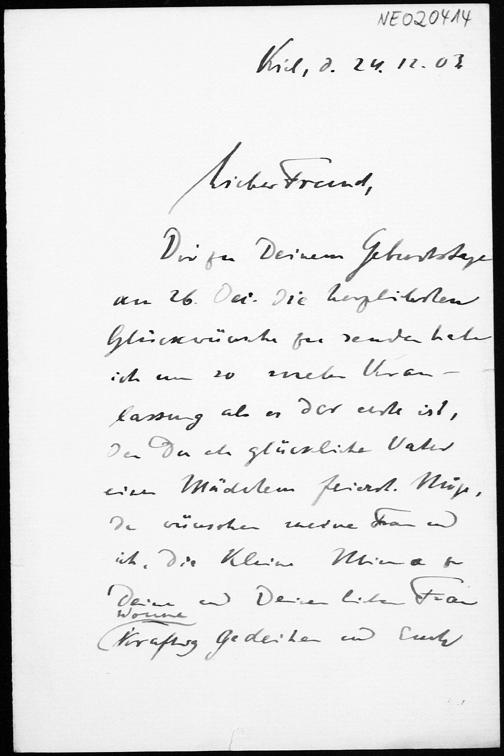 NEO20414
Kiel, d. 24. 12. 03.
Lieber Freund,
Dir zu Deinem Geburtstage
am 26. Dez. die herzlichsten
Glückwünsche zu senden habe
ich um so mehr Veran-
lassung als es der erste ist,
den Du als glücklicher Vater
eines Mädchens feierst. Möge,
so wünschen meine Frau und
ich, die kleine
Deiner und Deiner lieben Frau
Wonne
kräftig gedeihen und Euch